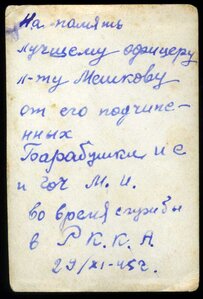 На память
лучшему офицеру
л-ту Мешкову
от его подчине-
нных
Барабушки и с
и гоч М. И.
во время службы
в Р. К. К. А.
29/XI-45г.